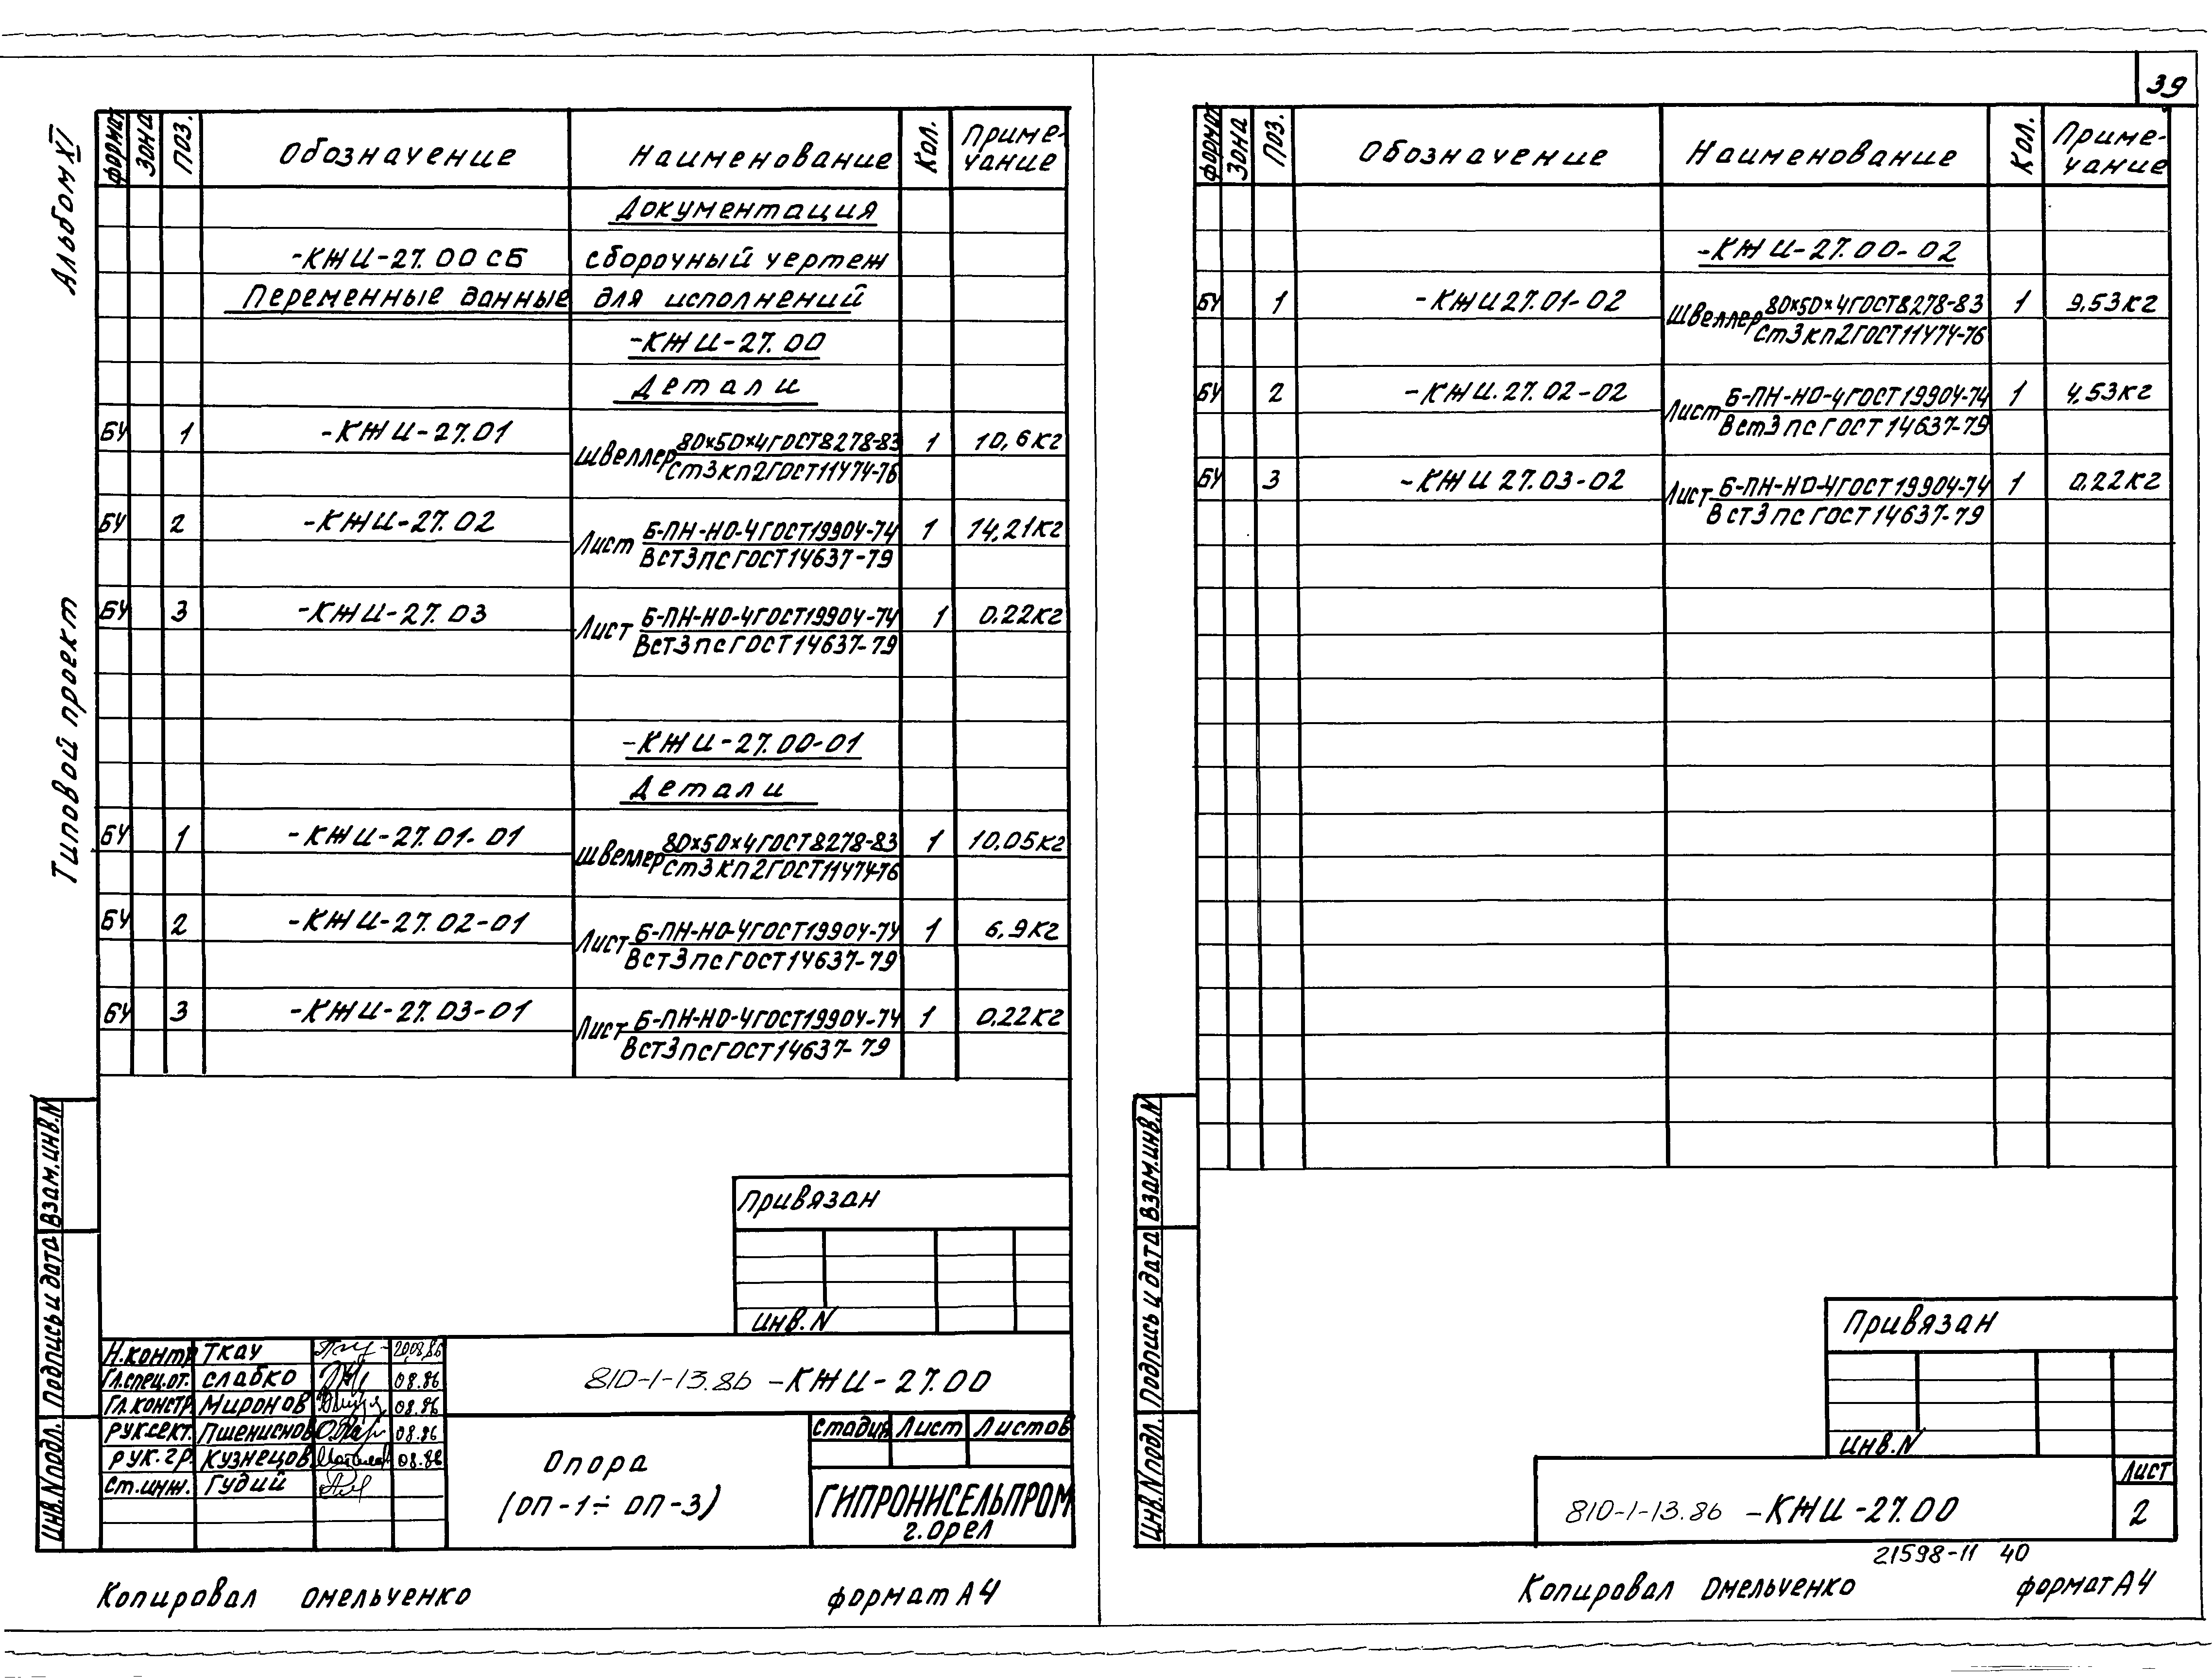 39
Альбом XI
Типовой проект
Формат Зона Поз. Обозначение Наименование Кол. Приме-
чание
Документация
-КЖИ-27.00 СБ сборочный чертеж
Переменные данные для исполнений
-КЖИ-27.00
Детали
БЧ 1 -КЖИ-27.01 Швеллер 80х50х4 ГОСТ 8278-83 1 10,6 кг
Ст3кп2 ГОСТ 11474-76
БЧ 2 -КЖИ-27.02 Лист Б-ПН-НО-4 ГОСТ 19904-74 1 14,21 кг
ВСт3пс ГОСТ 14637-79
БЧ 3 -КЖИ-27.03 Лист Б-ПН-НО-4 ГОСТ 19904-74 1 0,22 кг
ВСт3пс ГОСТ 14637-79
-КЖИ-27.00-01
Детали
БЧ 1 -КЖИ-27.01-01 Швеллер 80х50х4 ГОСТ 8278-83 1 10,05 кг
Ст3кп2 ГОСТ 11474-76
БЧ 2 -КЖИ-27.02-01 Лист Б-ПН-НО-4 ГОСТ 19904-74 1 6,9 кг
ВСт3пс ГОСТ 14637-79
БЧ 3 -КЖИ-27.03-01 Лист Б-ПН-НО-4 ГОСТ 19904-74 1 0,22 кг
ВСт3пс ГОСТ 14637-79
Взам. инв. N
Подпись и дата
Инв. N подл.
Привязан
Инв. N
Н. контр Ткач 20.08.86
Гл. спец. от. Слабко 08.86
Гл. констр. Миронов 08.86
Рук. сект. Пшениснов 08.86
Рук. гр. Кузнецов 08.86
Ст. инж. Гудий
810-1-13.86 -КЖИ-27.00
Опора
(ОП-1÷ ОП-3)
Стадия Лист Листов
ГИПРОНИСЕЛЬПРОМ
г. Орел
Копировал Омельченко Формат А4
Формат Зона Поз. Обозначение Наименование Кол. Приме-
чание
-КЖИ-27.00-02
БЧ 1 -КЖИ 27.01-02 Швеллер 80х50х4 ГОСТ 8278-83 1 9,53 кг
Ст3кп2 ГОСТ 11474-76
БЧ 2 -КЖИ.27.02-02 Лист Б-ПН-НО-4 ГОСТ 19904-74 1 4,53 кг
ВСт3пс ГОСТ 14637-79
БЧ 3 -КЖИ 27.03-02 Лист Б-ПН-НО-4 ГОСТ 19904-74 1 0,22 кг
ВСт3пс ГОСТ 14637-79
Взам. инв. N
Подпись и дата
Инв. N подл.
Привязан
Инв. N
810-1-13.86 -КЖИ-27.00
Лист
2
21598-11 40
Копировал Омельченко Формат А4